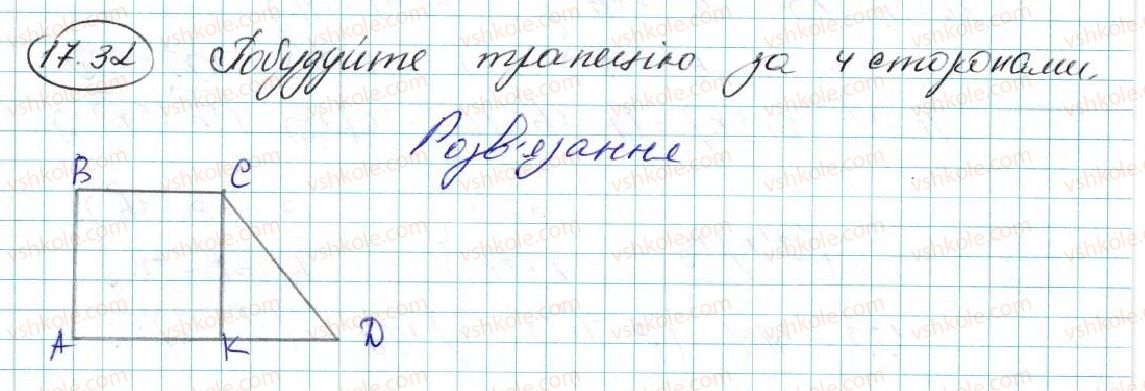 17.32 Побудуйте трапецію за 4 сторонами.
Розв'язання
B C
A K D